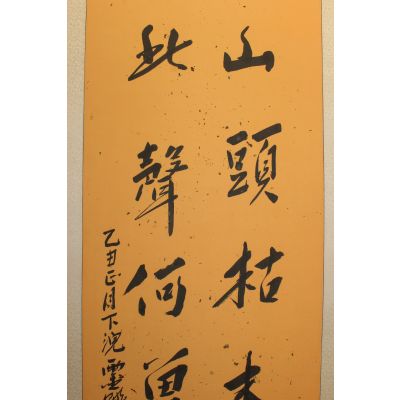 山頭枯
此聲何
乙丑正月下浣靈